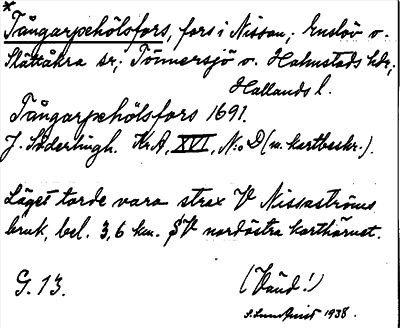 *
Tångarpehölsfors, fors i Nissan; Enslöv o.
Slättåkra sr; Tönnersjö o. Halmstads hdr;
Hallands l.
Tångarpehölsfors 1691.
J. Söderlingh. Kr.A, XVI, N:o D (m. kartbeskr.).
Läget torde vara strax V Nissaströms
bruk, bel. 3,6 km. SV nordöstra karthörnet.
G. 13. (Vänd!)
1938.